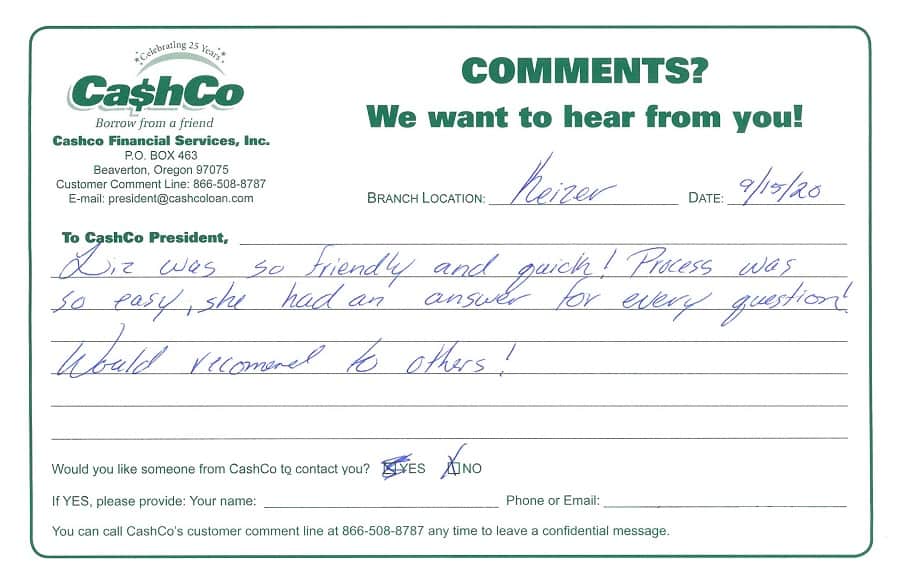 Celebrating 25 Years
Ca$hCo
Borrow from a friend
Cashco Financial Services, Inc.
P.O. BOX 463
Beaverton, Oregon 97075
Customer Comment Line: 866-508-8787
E-mail: president@cashcoloan.com
COMMENTS?
We want to hear from you!
BRANCH LOCATION: Keizer DATE: 9/15/20
To CashCo President,
Liz was so friendly and quick! Process was
so easy, she had an answer for every question!
Would recomend to others!
Would you like someone from CashCo to contact you? YES NO
If YES, please provide: Your name: Phone or Email:
You can call CashCo's customer comment line at 866-508-8787 any time to leave a confidential message.